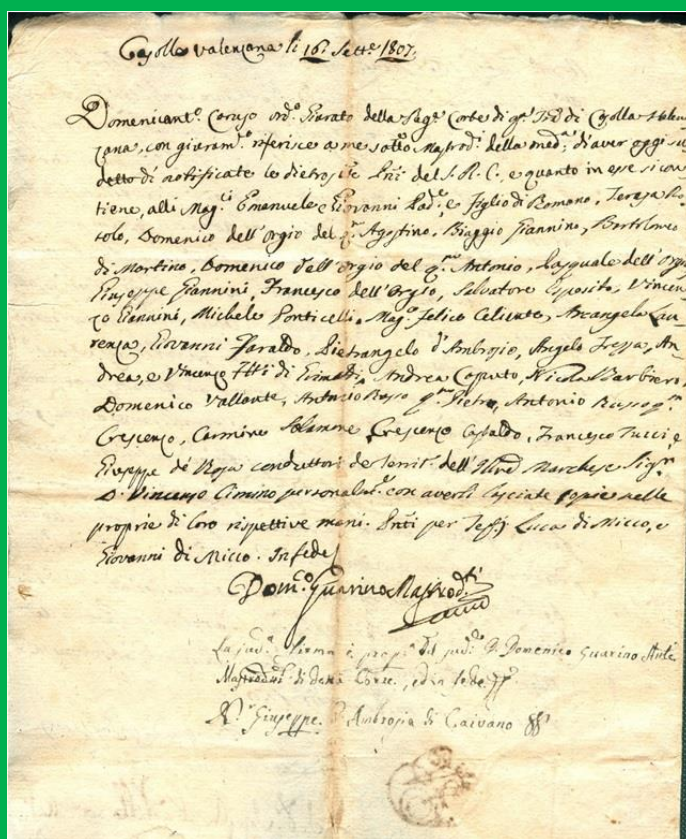 Casolla Valenzana li 16. Sett.e 1807.
Domenicant.o Caruso ord.o Giurato della Reg.a Corte di q.o Fed di Casolla Valen
zana, con giuram.o riferisce a me sotto Mastrod.i della med.a d'aver oggi su
detto dì notificate le dietroscr.e Prñi del S. R. C., e quanto in esse si con
tiene, alli Mag.ci Emanuele e Giovanni Pad.e, e figlio di Romano, Teresa Ro
solo, Domenico dell'Orgio del q.m Agostino, Biaggio Giannino, Bartolomeo
di Martino, Domenico dell'Orgio del q.m Antonio, Pasquale dell'Orgio
Giuseppe Giannini, Francesco dell'Orgio, Salvatore Esposito, Vincen
zo Giannini, Michele Ponticelli, Mag.o Felice Celiento, Arcangelo Lau
renza, Giovanni Faraldo, Pietrangelo d'Ambrosio, Angelo Tezza, An
drea, e Vincenzo Ftti di Grimaldi, Andrea Caputo, Nicola Barbiero,
Domenico Vallante, Antonio Russo q.m Pietro, Antonio Russo q.m
Crescenzo, Carmine Salamone, Crescenzo Castaldo, Francesco Tucci, e
Giuseppe de Rosa conduttori de territ.i dell'Ill.e Marchese Sig.r
D. Vincenzo Cimino personalm.e con averli lasciate copie nelle
proprie di loro rispettive mani. Pnti per Testj Luca di Micco, e
Giovanni di Micco. In fede
Dom.co Guarino Mastrod.i
La sud.a firma è prop.a del sud.o D. Domenico Guarino Att.e
Mastrod.i di detta Corte, ed in fede
N.r Giuseppe D'Ambrosio di Caivano